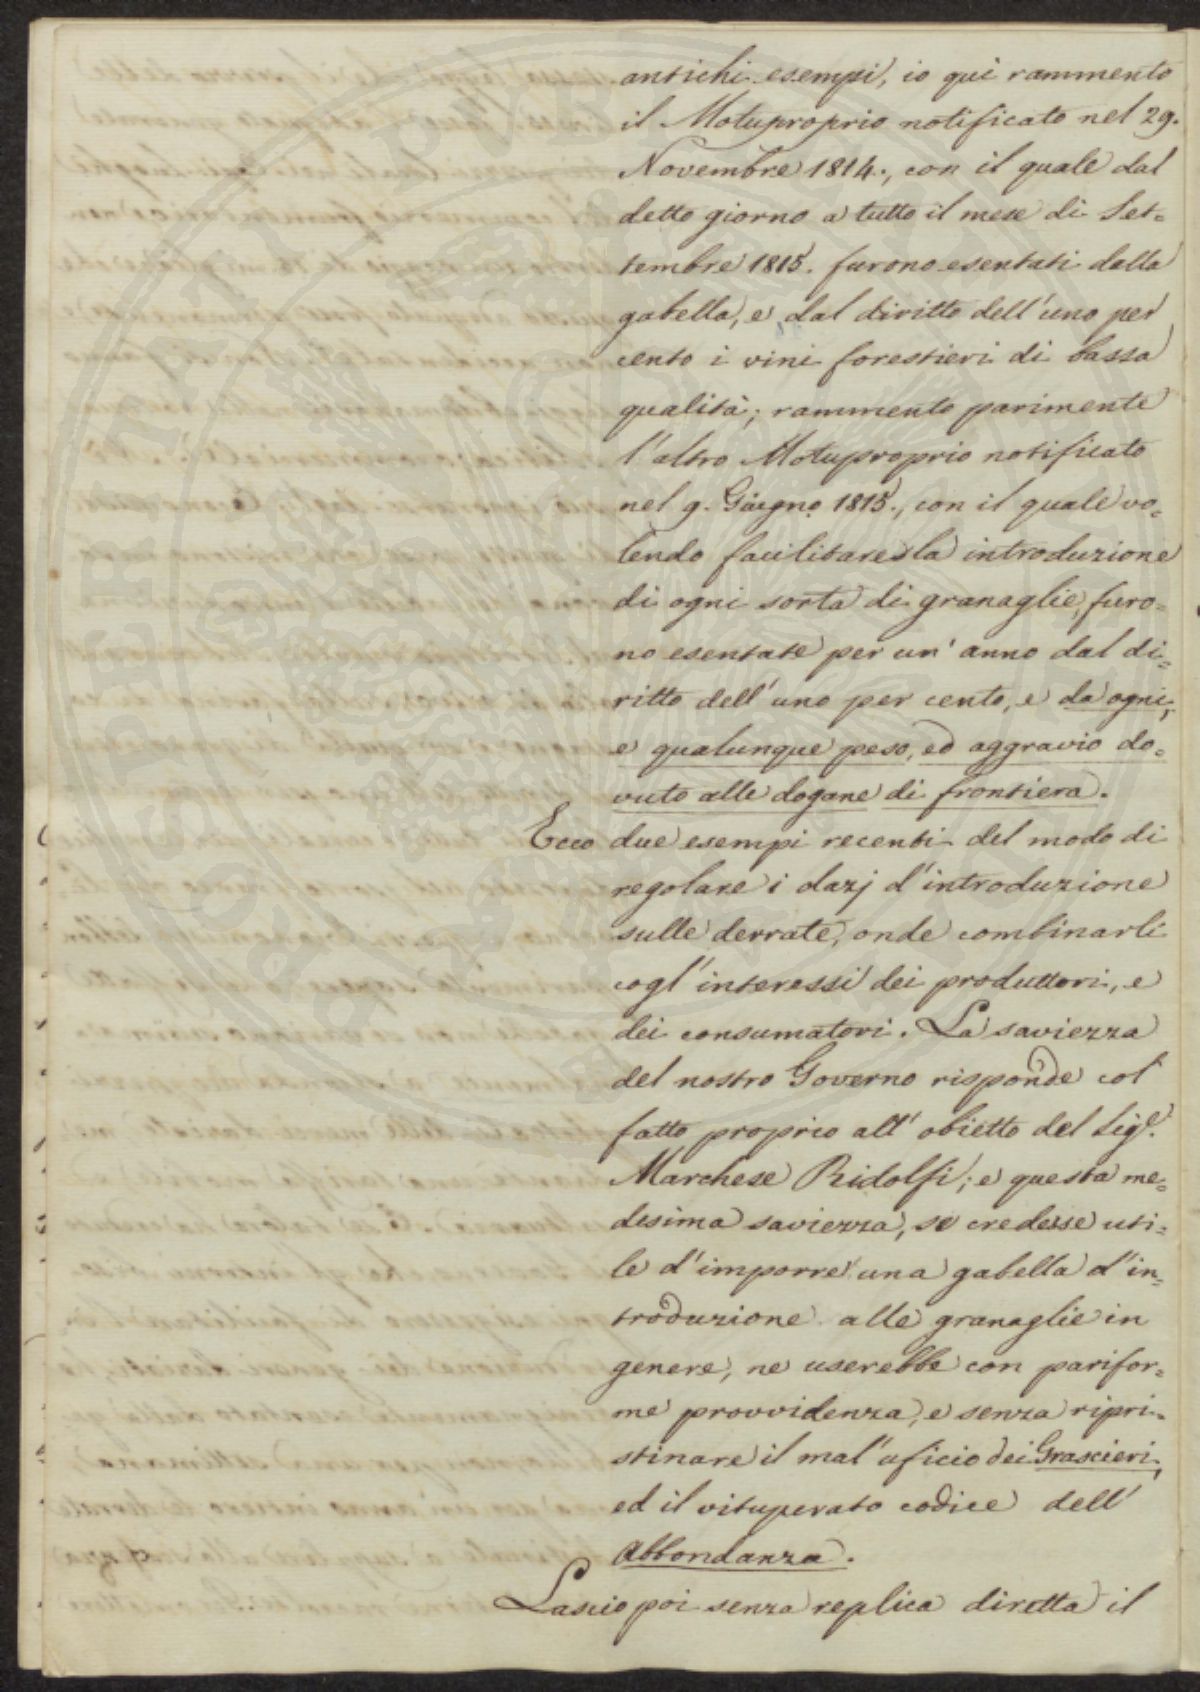 antichi esempi, io quì rammento
il Motuproprio notificato nel 29.
Novembre 1814., con il quale dal
detto giorno a tutto il mese di Set=
tembre 1815. furono esentati dalla
gabella, e dal diritto dell'uno per
cento i vini forestieri di bassa
qualità; rammento parimente
l'altro Motuproprio notificato
nel 9. Giugno 1815., con il quale vo=
lendo facilitare la introduzione
di ogni sorta di granaglie, furo=
no esentate per un' anno dal di=
ritto dell'uno per cento, e da ogni,
e qualunque peso, ed aggravio do=
vuto alle dogane di frontiera.
Ecco due esempi recenti del modo di
regolare i dazj d'introduzione
sulle derrate, onde combinarli
cogl'interessi dei produttori, e
dei consumatori. La saviezza
del nostro Governo risponde col
fatto proprio all' obietto del Sig.e
Marchese Ridolfi; e questa me=
desima saviezza, se credesse uti=
le d'imporre una gabella d'in=
troduzione alle granaglie in
genere, ne userebbe con parifor=
me provvidenza, e senza ripri=
stinare il mal'uficio dei Grascieri,
ed il vituperato codice dell'
Abbondanza.
Lascio poi senza replica diretta il
PROSPERITATI PUBLICAE